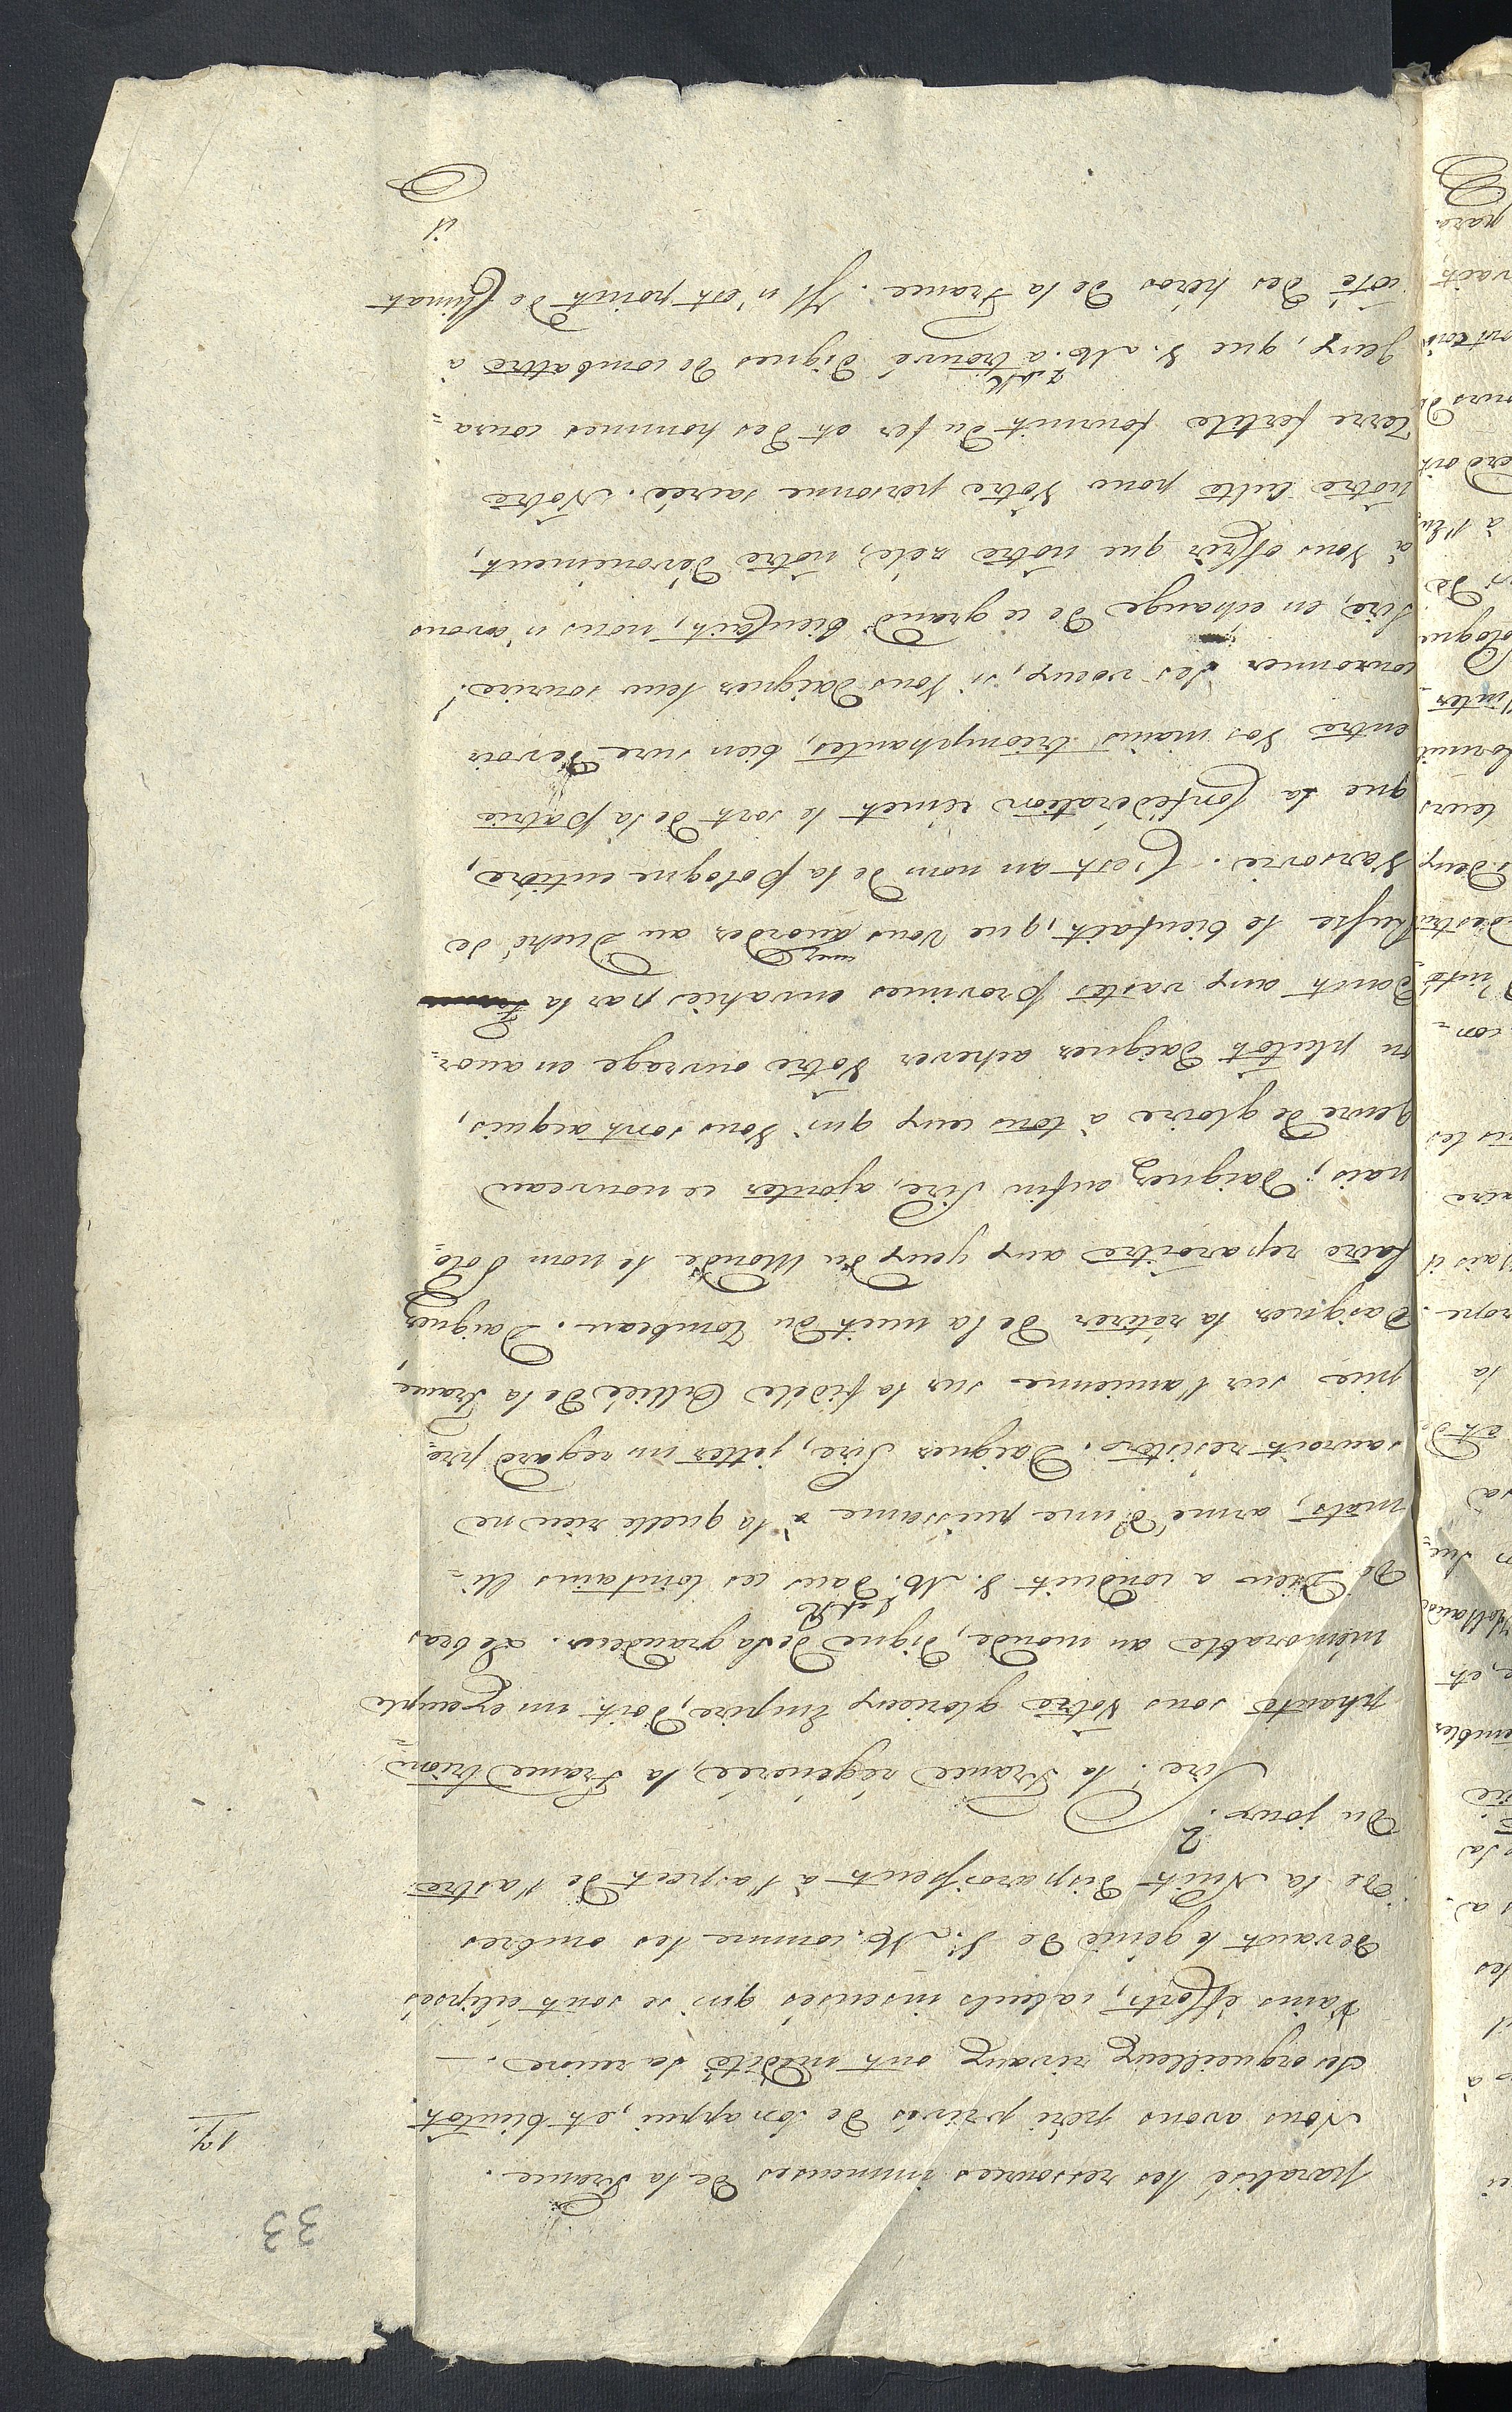 33
17.
paralisé les ressources immenses de la France.
Nous avons péri privés de son appui, et bientôt
des orgueilleux rivaux ont médité sa ruine. —
Vains efforts, calculs insensés qui se sont eclipsés
devant le génie de V. M. comme les ombres
de la Nuit disparoissent à l'aspect de l'astre
du jour.
Sire! la France régénérée, la France triom=
phante sous Vôtre glorieux Empire, doit un exemple
mémorable au monde, digne de sa grandeur. Le bras
de Dieu a conduit V. M. I. et R. dans ces lointains cli=
mats, armé d'une puissance à la quelle rien ne
sauroit resister. Daignez Sire, jetter un regard pro=
pice sur l'ancienne sur la fidéle Alliée de la France,
daignez la rétirer de la nuit du Tombeau. Daignez
faire reparoitre aux yeux du Monde le nom Polo=
nais; Daignez enfin Sire, ajouter ce nouveau
genre de gloire à tous ceux qui Vous sont acquis,
ou plutôt daignez achever Vôtre ouvrage en accor=
dant aux vastes provinces envahies par la
Russie le bienfait, que Vous accordez au Duché de
Varsovie. C'est au nom de la Pologne entière,
que la Confédération remet le sort de la Patrie
entre Vos mains triomphantes, bien sure de voir
couronner ses voeux, si Vous daignez leur sourire!
Sire, en echange de ce grand bienfait, nous n'avons
à Vous offrir que nôtre zéle, nôtre dévouement,
nôtre culte pour Vôtre personne sacrée. Nôtre
Terre fertile fournit du fer et des hommes coura=
geux, que V. M. I. et R. a trouvé dignes de combattre à
côté des héros de la France. Il n'est point de Climat
il